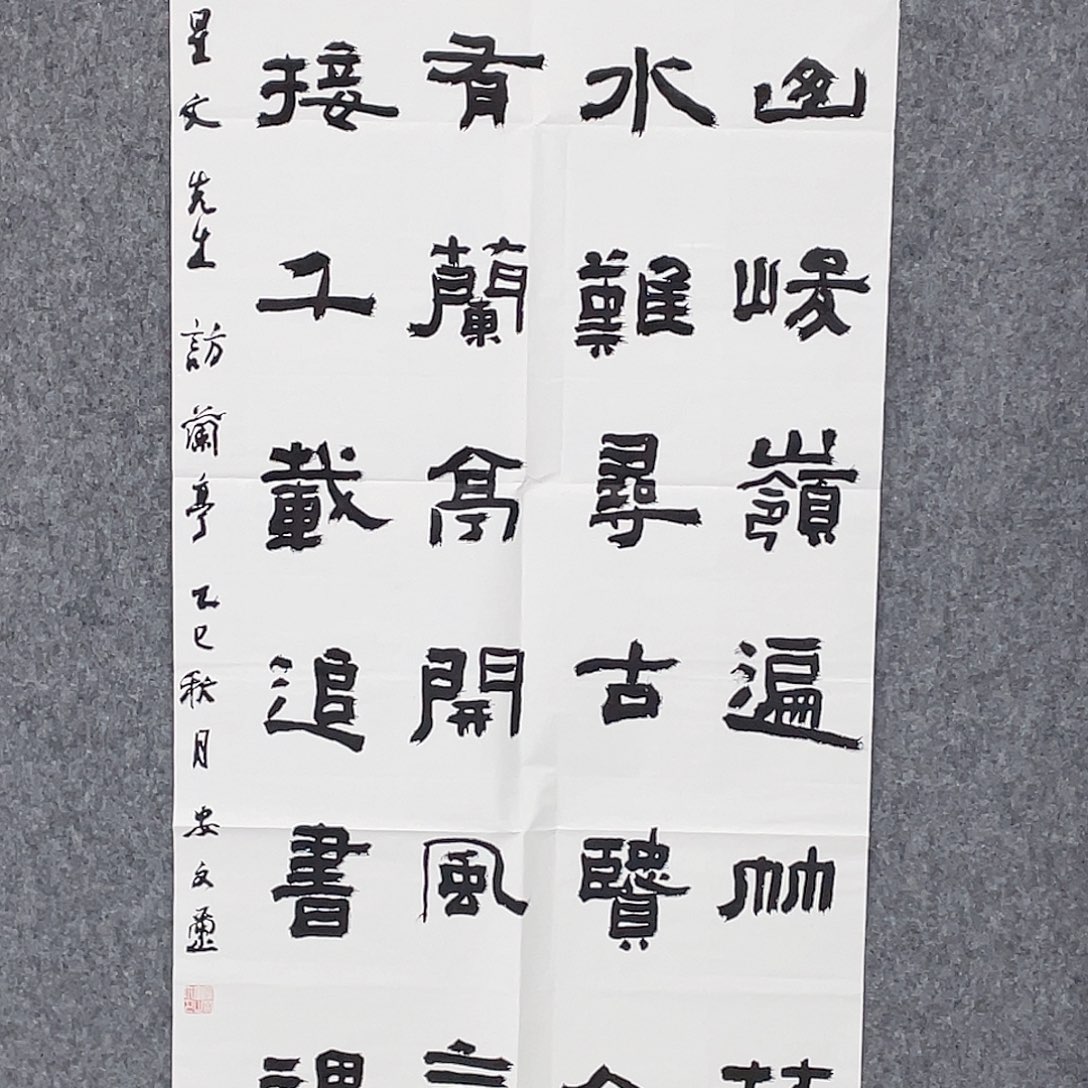 幽峻嶺遍竹
水難尋古賢
有蘭亭開風
接千載追書
星文先生訪蘭亭乙巳秋月安文